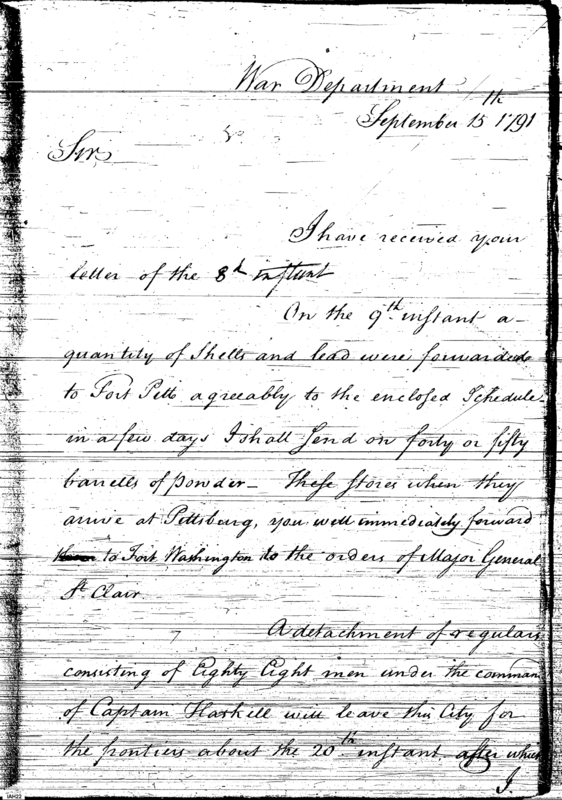 War Department
September 15th 1791
Sir
I have received your
letter of the 8th instant
On the 9th instant a
quantity of Shells and lead were forwarded
to Fort Pitt agreeably to the enclosed Schedule
in a few days I shall send on forty or fifty
barrells of powder – These stores when they
arrive at Pittsburg, you will immediately forward
to Fort Washington to the orders of Major General
St Clair.
A detachment of regulars
consisting of Eighty Eight men under the command
of Captain Haskell will leave this City for
the frontiers about the 20th instant after which
I.